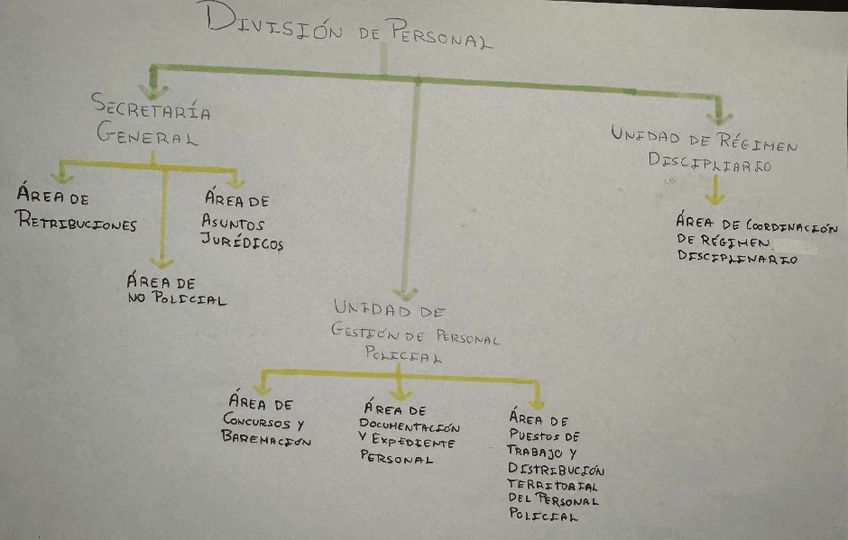 DIVISIÓN DE PERSONAL
SECRETARÍA
GENERAL
ÁREA DE
RETRIBUCIONES
ÁREA DE
ASUNTOS
JURÍDICOS
ÁREA DE
NO POLICIAL
UNIDAD DE
GESTIÓN DE PERSONAL
POLICIAL
ÁREA DE
CONCURSOS Y
BAREMACIÓN
ÁREA DE
DOCUMENTACIÓN
Y EXPEDIENTE
PERSONAL
ÁREA DE
PUESTOS DE
TRABAJO Y
DISTRIBUCIÓN
TERRITORIAL
DEL PERSONAL
POLICIAL
UNIDAD DE RÉGIMEN
DISCIPLIARIO
ÁREA DE COORDINACIÓN
DE RÉGIMEN
DISCIPLINARIO